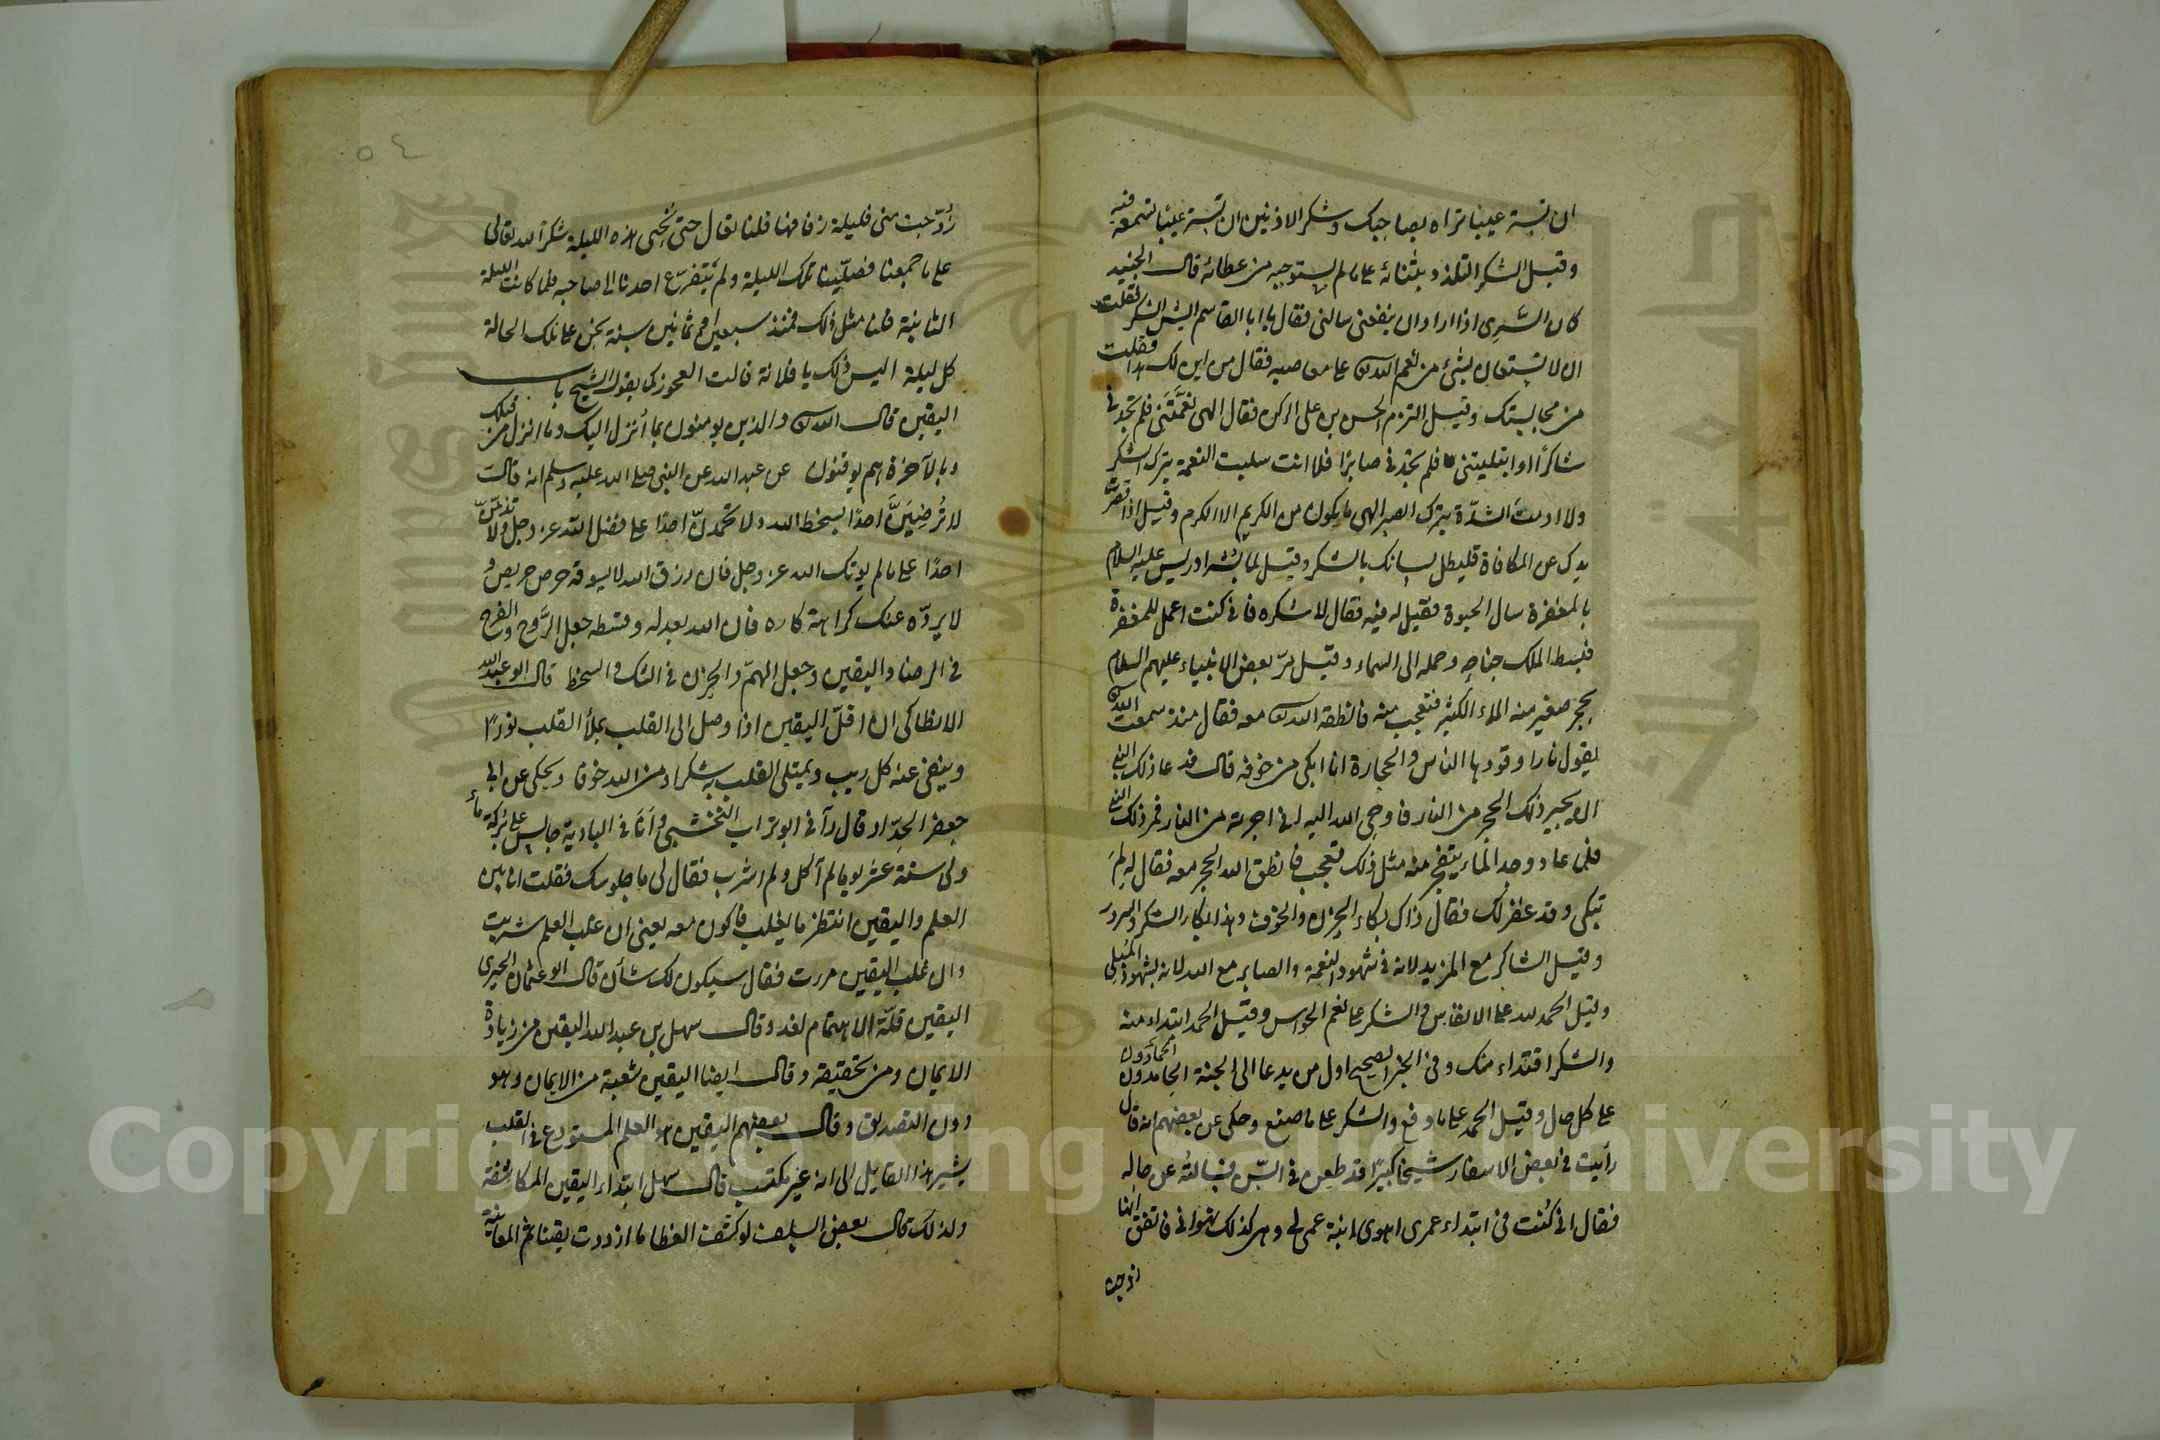 ان تستر عيبا تراه بصاحبك وشكر الاذنين ان تستر عيبا تسمعه فيه
وقيل الشكر التلذذ بثنائه على ما لم يستوجبه من عطائه قال الجنيد
كان السري اذا اراد ان ينفعني سالني فقال يا ابا القاسم ايش الشكر فقلت
ان لا تستعان بشئ من نعم الله تعالى على معاصيه فقال من اين لك هذا فقلت
من مجالستك وقيل التزم الحسن بن علي الركن فقال الهي نعمتني فلم تجدني
شاكرا وابتليتني فلم تجدني صابرا فلا انت سلبت النعمة بترك الشكر
ولا ادمت الشدة بترك الصبر الهي ما يكون من الكريم الا الكرم وقيل اذا قصرت
يدك عن المكافاة فليطل لسانك بالشكر وقيل لما بشر ادريس عليه السلام
بالمغفرة سال الحيوة فقيل له فيه فقال لاشكره فاني كنت اعمل للمغفرة
فبسط الملك جناحه وحمله الى السماء وقيل مر بعض الانبياء عليهم السلام
بحجر صغير منه الماء الكثير فتعجب منه فانطقه الله تعالى معه فقال منذ سمعت الله تعالى
يقول نارا وقودها الناس والحجارة انا ابكي من خوفه قال فدعا ذلك النبي
ان يجير ذلك الحجر من النار فاوحى الله اليه اني اجرته من النار فمر ذلك النبي
فلما عاد وجد الماء يتفجر منه مثل ذلك فتعجب فانطق الله الحجر معه فقال له لم
تبكي وقد غفر لك فقال ذاك بكاء الحزن والخوف وهذا بكاء الشكر والسرور
وقيل الشاكر مع المزيد لانه في شهود النعمة والصابر مع الله لانه بشهود المبلي
وقيل الحمد لله على الانفاس والشكر على نعم الحواس وقيل الحمد ابتداء منه
والشكر اقتداء منك وفي الخبر الصحيح اول من يدعا الى الجنة الحامدون الحمادون
على كل حال وقيل الحمد على ما دفع والشكر على ما صنع وحكي عن بعضهم انه قال
رأيت في بعض الاسفار شيخا كبيرا قد طعن في السن فسالته عن حاله
فقال اني كنت في ابتداء عمري اهوى ابنة عم لي وهي كذلك تهواني فاتفق انها
زوجت
زُوّجت مني فليلة زفافها قلنا تعال حتى نحيي هذه الليلة شكرا لله تعالى
على ما جمعنا فصلينا تلك الليلة ولم يتفرغ احدنا الى صاحبه فلما كانت الليلة
الثانية قلنا مثل ذلك فمنذ سبعين او ثمانين سنة نحن على تلك الحالة
كل ليلة اليس ذلك يا فلانة قالت العجوز كما يقول الشيخ باب
اليقين قال الله تعالى والذين يومنون بما أنزل اليك وما انزل من قبلك
وبالآخرة هم يوقنون عن عبد الله عن النبي صلى الله عليه وسلم انه قال
لا تُرضِيَنَّ احدًا بسخط الله ولا تحمدنّ احدًا على فضل الله عز وجل ولا تذمنّ
احدًا على ما لم يوتك الله عز وجل فان رزق الله لا يسوقه حرص حريص و
لا يردّه عنك كراهة كاره فان الله بعدله وقسطه جعل الرَّوح والفرح
في الرضا واليقين وجعل الهمّ والحزن في الشك والسخط قال ابو عبد الله
الانطاكي ان اقلّ اليقين اذا وصل الى القلب يملأ القلب نورًا
وينفي عنه كل ريب ويمتلئ القلب به شكرا ومن الله خوفا ويحكى عن ابي
جعفر الحدّاد قال رآني ابو تراب النخشبي وأنا في البادية جالس على بركة ماء
ولي ستة عشر يوما لم آكل ولم اشرب فقال لي ما جلوسك فقلت انا بين
العلم واليقين انتظر ما يغلب فاكون معه يعني ان غلب العلم شربت
وان غلب اليقين مررت فقال سيكون لك شأن قال ابو عثمان الحيري
اليقين قلّة الاهتمام لغد وقال سهل بن عبد الله اليقين من زيادة
الايمان ومن تحقيقه وقال ايضا اليقين شعبة من الايمان وهو
دون التصديق وقال بعضهم اليقين هو العلم المستودع في القلب
يشير هذا القايل الى انه غير مكتسب قال سهل ابتداء اليقين المكاشفة
ولذلك قال بعض السلف لو كشف الغطا ما ازددت يقينا ثم المعاينة
٥٤
Copyright © King Saud University
جامعة الملك سعود